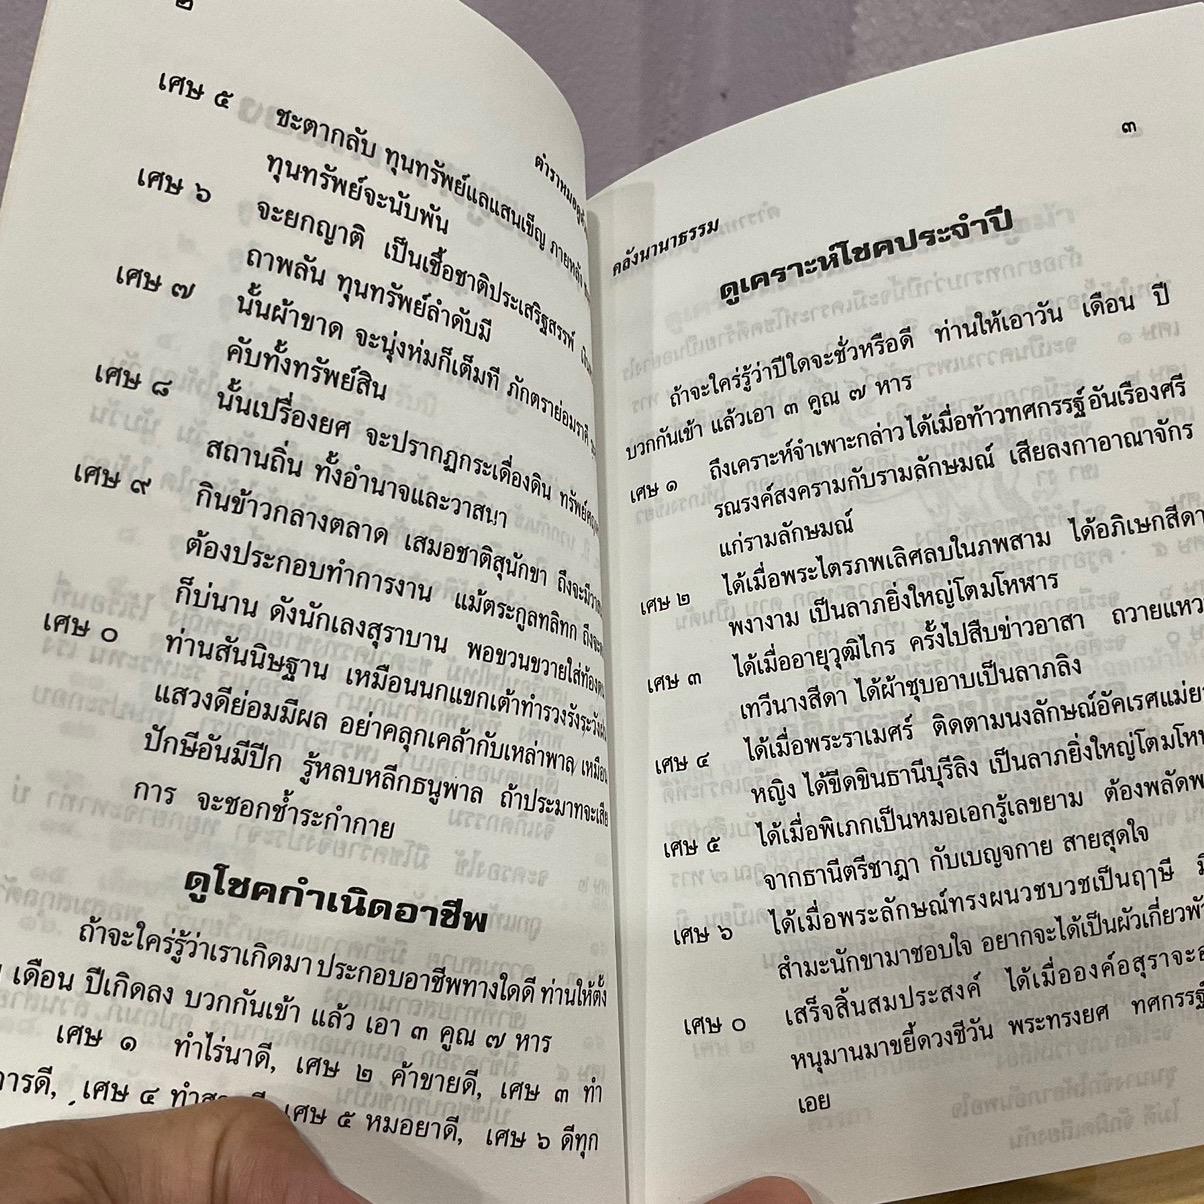 ๒
ตำราหมอดู
เศษ ๕ ชะตากลับ ทุนทรัพย์แลแสนเข็ญ ภายหลัง
ทุนทรัพย์จะนับพัน
เศษ ๖ จะยกญาติ เป็นเชื้อชาติประเสริฐสรรพ์
ถาพลัน ทุนทรัพย์ลำดับมี
เศษ ๗ นั้นผ้าขาด จะนุ่งห่มก็เต็มที ภักตราย่อมราศี
คับทั้งทรัพย์สิน
เศษ ๘ นั้นเปรื่องยศ จะปรากฏกระเดื่องดิน ทรัพย์
สถานถิ่น ทั้งอำนาจและวาสนา
เศษ ๙ กินข้าวกลางตลาด เสมอชาติสุนักขา ถึงจะมี
ต้องประกอบทำการงาน แม้ตระกูลทลิทก ถึงจะ
ก็บ่นาน ดังนักเลงสุราบาน พอขวนขวายใส่ท้อง
เศษ ๐ ท่านสันนิษฐาน เหมือนนกแขกเต้าทำรวงรังระวัง
แสวงดีย่อมมีผล อย่าคลุกเคล้ากับเหล่าพาล เหมือน
ปักษีอันมีปีก รู้หลบหลีกธนูพาล ถ้าประมาทจะเสีย
การ จะชอกช้ำระกำกาย
ดูโชคกำเนิดอาชีพ
ถ้าจะใคร่รู้ว่าเราเกิดมา ประกอบอาชีพทางใดดี ท่านให้ตั้ง
เดือน ปีเกิดลง บวกกันเข้า แล้ว เอา ๓ คูณ ๗ หาร
เศษ ๑ ทำไร่นาดี, เศษ ๒ ค้าขายดี, เศษ ๓ ทำ
การดี, เศษ ๔ เศษ ๕ หมอยาดี, เศษ ๖ ดีทุก
๓
คลังนานาธรรม
ดูเคราะห์โชคประจำปี
ถ้าจะใคร่รู้ว่าปีใดจะชั่วหรือดี ท่านให้เอาวัน เดือน ปี
บวกกันเข้า แล้วเอา ๓ คูณ ๗ หาร
เศษ ๑ ถึงเคราะห์จำเพาะกล่าว ได้เมื่อท้าวทศกรรฐ์อันเรืองศรี
รณรงค์สงครามกับรามลักษมณ์ เสียลงกาอาณาจักร
แก่รามลักษมณ์
เศษ ๒ ได้เมื่อพระไตรภพเลิศลบในภพสาม ได้อภิเษกสีดา
พงางาม เป็นลาภยิ่งใหญ่โตมโหฬาร
เศษ ๓ ได้เมื่ออายุวุฒิไกร ครั้งไปสืบข่าวอาสา ถวายแหว
เทวีนางสีดา ได้ผ้าชุบอาบเป็นลาภลิง
เศษ ๔ ได้เมื่อพระราเมศร์ ติดตามนงลักษณ์อัคเรศแม่ย
หญิง ได้ขีดขินธานีบุรีลิง เป็นลาภยิ่งใหญ่โตมโห
เศษ ๕ ได้เมื่อพิเภกเป็นหมอเอกรู้เลขยาม ต้องพลัดพ
จากธานีตรีชาฎา กับเบญจกาย สายสุดใจ
เศษ ๖ ได้เมื่อพระลักษณ์ทรงผนวชบวชเป็นฤาษี
สำมะนักขามาชอบใจ อยากจะได้เป็นผัวเกี่ยวพั
เศษ ๐ เสร็จสิ้นสมประสงค์ ได้เมื่อองค์อสุราจะ
หนุมานมาขยี้ดวงชีวัน พระทรงยศ ทศกรรฐ์
เอย